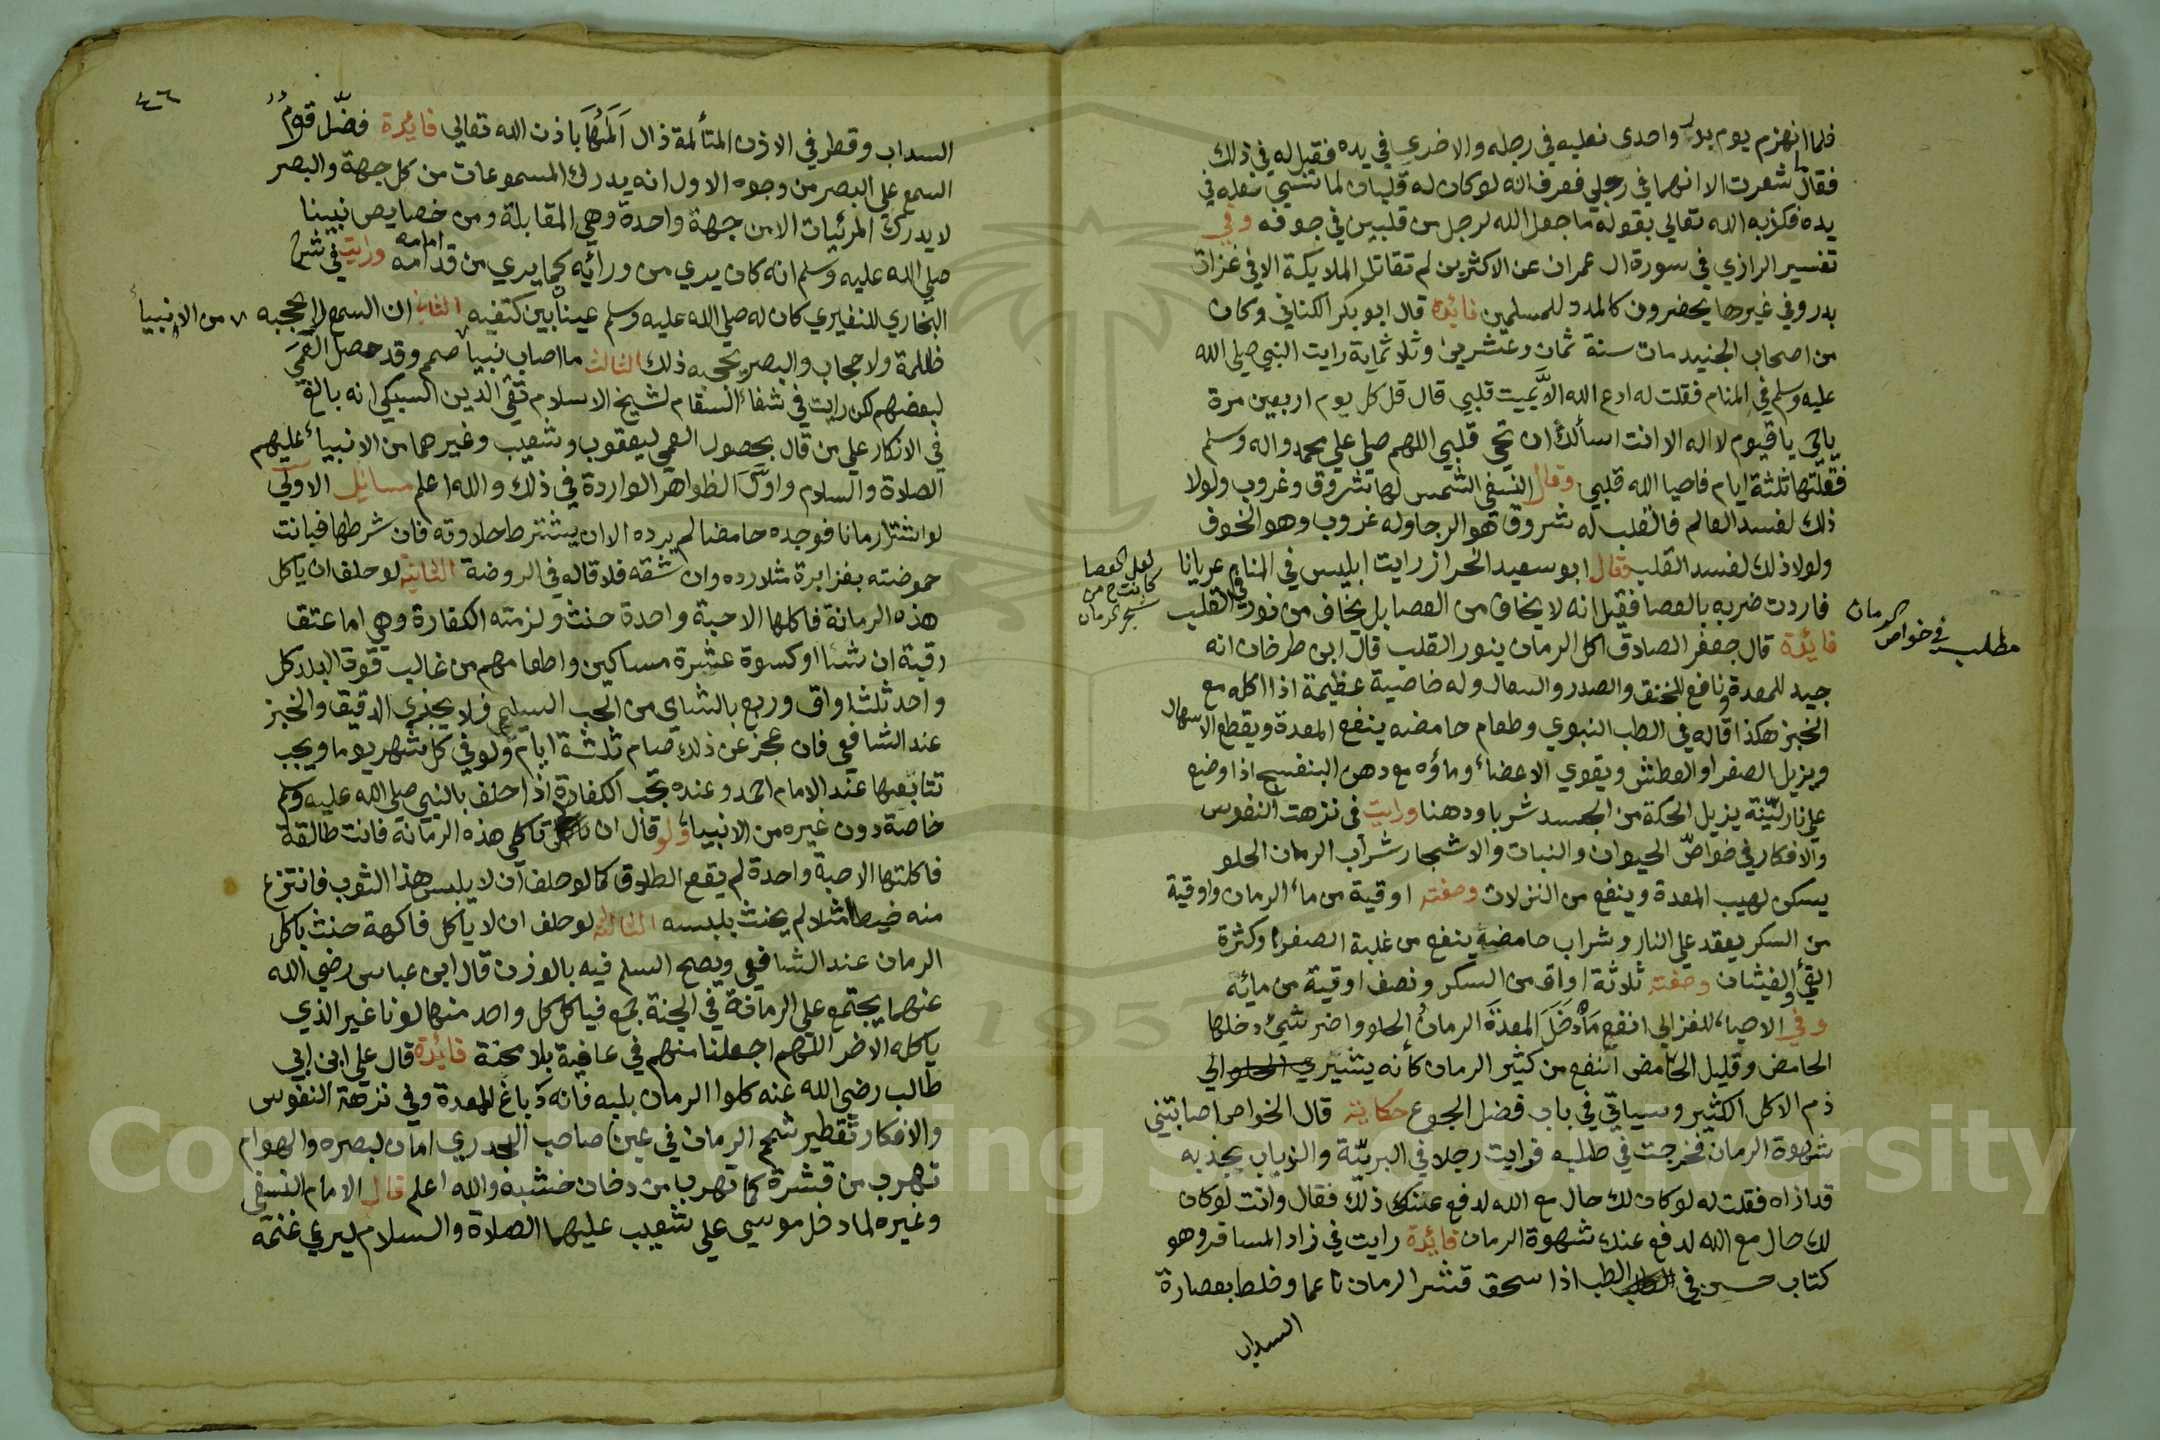 فلما انهزم يوم بدر واحدى نعليه في رجله والاخرى في يده فقيل له في ذلك
فقال ما شعرت الا انهما في رجلي فعرف انه لو كان له قلبان لما نسي نعله في
يده فكذبه الله تعالي بقوله ما جعل الله لرجل من قلبين في جوفه وفي
تفسير الرازي في سورة ال عمران عن الاكثرين لم تقاتل الملايكة الا في غزاة
بدر وفي غيرها يحضرون كالمدد للمسلمين فايدة قال ابو بكر الكتاني وكان
من اصحاب الجنيد مات سنة ثمان وعشرين وثلاثماية رايت النبي صلي الله
عليه وسلم في المنام فقلت له ادع الله الا يميت قلبي قال قل كل يوم اربعين مرة
ياحي يا قيوم لا اله الا انت اسألك ان تحي قلبي اللهم صلي علي محمد واله وسلم
فقلتها ثلثة ايام فاحيا الله قلبي وقال النسفي الشمس لها شروق وغروب ولولا
ذلك لفسد العالم فالقلب له شروق هو الرجا وله غروب وهو الخوف
ولولا ذلك لفسد القلب وقال ابو سعيد الخراز رايت ابليس في المنام عريانا
فاردت ضربه بالعصا فقيل انه لا يخاف من العصا بل يخاف من نور في القلب
لعل العصا
كانت من
شجر الرمان
مطلب في خواص الرمان
فايدة قال جعفر الصادق اكل الرمان ينور القلب قال ابن طرخان انه
جيد للمعدة ونافع للخنق والصدر والسعال وله خاصية عظيمة اذا اكله مع
الخبز هكذا قاله في الطب النبوي وطعام حامضه ينفع المعدة ويقطع الاسهال
ويزيل الصفرا والعطش ويقوي الاعضاء وماؤه مع دهن البنفسج اذا وضع
علي نار لينة يزيل الحكة من الجسد شربا ودهنا ورايت في نزهت النفوس
والافكار في خواص الحيوان والنبات والاشجار شراب الرمان الحلو
يسكن لهيب المعدة وينفع من النزلات وصفته اوقية من ماء الرمان واوقية
من السكر يعقد علي النار وشراب حامضه ينفع من غلبة الصفرا وكثرة
القئ والغيثان وصفته ثلاثة اواق من السكر ونصف اوقية من مائه
وفي الاحياء للغزالي انفع ما دخل المعدة الرمان الحلو واضر شيء دخلها
الحامض وقليل الحامض انفع من كثير الرمان كأنه يشيري الي
ذم الاكل الكثير وسياتي في باب فضل الجوع حكاية قال الخواص اصابتني
شهوة الرمان فخرجت في طلبه فرايت رجلا في البرية والذباب يجذبه
قد اذاه فقلت له لو كان لك حال مع الله لدفع عنك ذلك فقال وانت لو كان
لك حال مع الله لدفع عنك شهوة الرمان فايدة رايت في زاد المسافر وهو
كتاب حسن في الطب اذا سحق قشر الرمان ناعما وخلط بعصارة
السداب
٤٦
السداب وقطر في الاذن المتألمة زال المها باذن الله تعالي فايدة فضّل قوم
السمع علي البصر من وجوه الاول انه يدرك المسموعات من كل جهة والبصر
لا يدرك المرئيات الا من جهة واحدة وهي المقابلة ومن خصايص نبينا
صلي الله عليه وسلم انه كان يري من ورائه كما يري من قدامه امامه ورايت في شرح
البخاري للنفيري كان له صلي الله عليه وسلم عينا بين كتفيه الثاني ان السمع لا يحجبه
من الانبياء
ظلمة ولا حجاب والبصر يحجبه ذلك الثالث ما اصاب نبيا صمم وقد حصل العمى
لبعضهم لكن رايت في شفاء السقام لشيخ الاسلام تقي الدين السبكي انه بالغ
في الانكار علي من قال بحصول العمي ليعقوب وشعيب وغيرهما من الانبياء عليهم
الصلاة والسلام واوّل الظواهر الواردة في ذلك والله اعلم مسائل الاولي
لو اشترا رمانا فوجده حامضا لم يرده الا ان يشترط حلاوته فان شرطها فبانت
حموضته بغز ابرة مثلا رده وان شقه فلا قاله في الروضة الثانية لو حلف ان ياكل
هذه الرمانة فاكلها الا حبة واحدة حنث ولزمته الكفارة وهي اما عتق
رقبة ان شاا او كسوة عشرة مساكين واطعامهم من غالب قوة البلد كل
واحد ثلث اواق وربع بالشامي من الحب السليم فلا يجزي الدقيق والخبز
عند الشافعي فان عجز عن ذلك صام ثلثة ايام ولو في كل شهر يوما ويجب
تتابعها عند الامام احمد وعنده تجب الكفارة اذا حلف بالنبي صلي الله عليه وسلم
خاصة دون غيره من الانبياء ولو قال ان لم تاكلي هذه الرمانة فانت طالقة
فاكلتها الا حبة واحدة لم يقع الطلاق كما لو حلف ان لا يلبس هذا الثوب فانتزع
منه خيطا مثلا لم يحنث بلبسه الثالثة لو حلف ان لا ياكل فاكهة حنث باكل
الرمان عند الشافعي ويصح السلم فيه بالوزن قال ابن عباس رضي الله
عنهما يجتمع علي الرمانة في الجنة جمع فياكل كل واحد منها لونا غير الذي
ياكله الاخر اللهم اجعلنا منهم في عافية بلا محنة فايدة قال علي ابن ابي
طالب رضي الله عنه كلوا الرمان بلبه فانه دباغ للمعدة وفي نزهة النفوس
والافكار تقطير شحم الرمان في عين صاحب الجدري امان لبصره والهوام
تهرب من قشرة كما تهرب من دخان خشبه والله اعلم قال الامام النسفي
وغيره لما دخل موسي علي شعيب عليهما الصلاة والسلام ليرعي غنمه
1957
Copyright © King Saud University